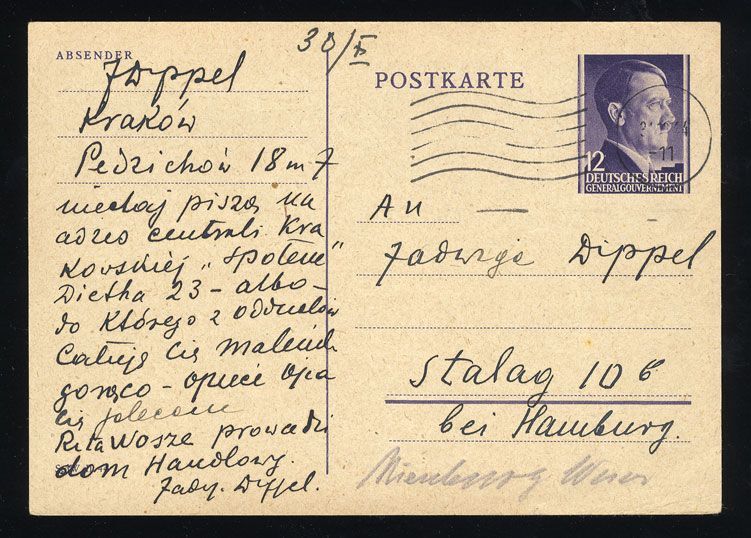 30/X
ABSENDER
J Dippel
Kraków
Pedzichów 18 m 7
niechaj piszą na
adres centrali Kra
kowskiej „Społem"
Dietla 23 - albo -
do którego z oddziałów
Całuję Cię maleńk
gorąco - opiece Ojca
Cię polecam
Rita Wosze prowadzi
dom Handlowy.
Jadw. Dippel.
POSTKARTE
12
DEUTSCHES REICH
GENERALGOUVERNEMENT
-11
An
Jadwiga Dippel
Stalag 10 b
bei Hamburg.
Nienburg Weser